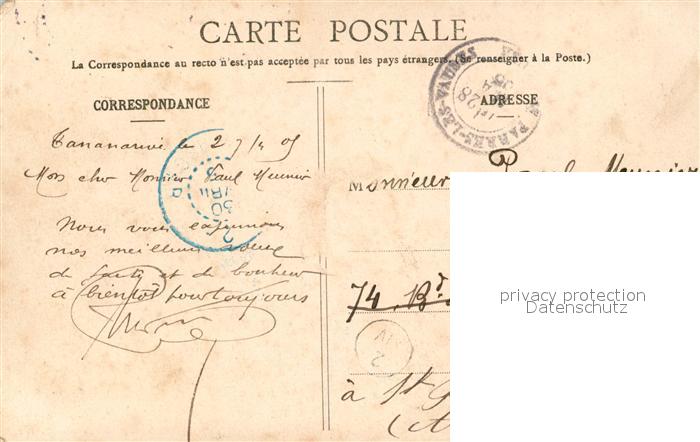 CARTE POSTALE
La Correspondance au recto n'est pas acceptée par tous les pays étrangers. (Se renseigner à la Poste.)
CORRESPONDANCE
Tananarive le 2
Mon cher Monsieur Paul Meunier
Nous vous exprimons
nos meilleurs voeux
de santé et de bonheur
à bientôt pour toujours
ADRESSE
PARRES-LES-VAUDES
28
Monsieur Paul Meunier
74 Bd
à St
privacy protection
Datenschutz